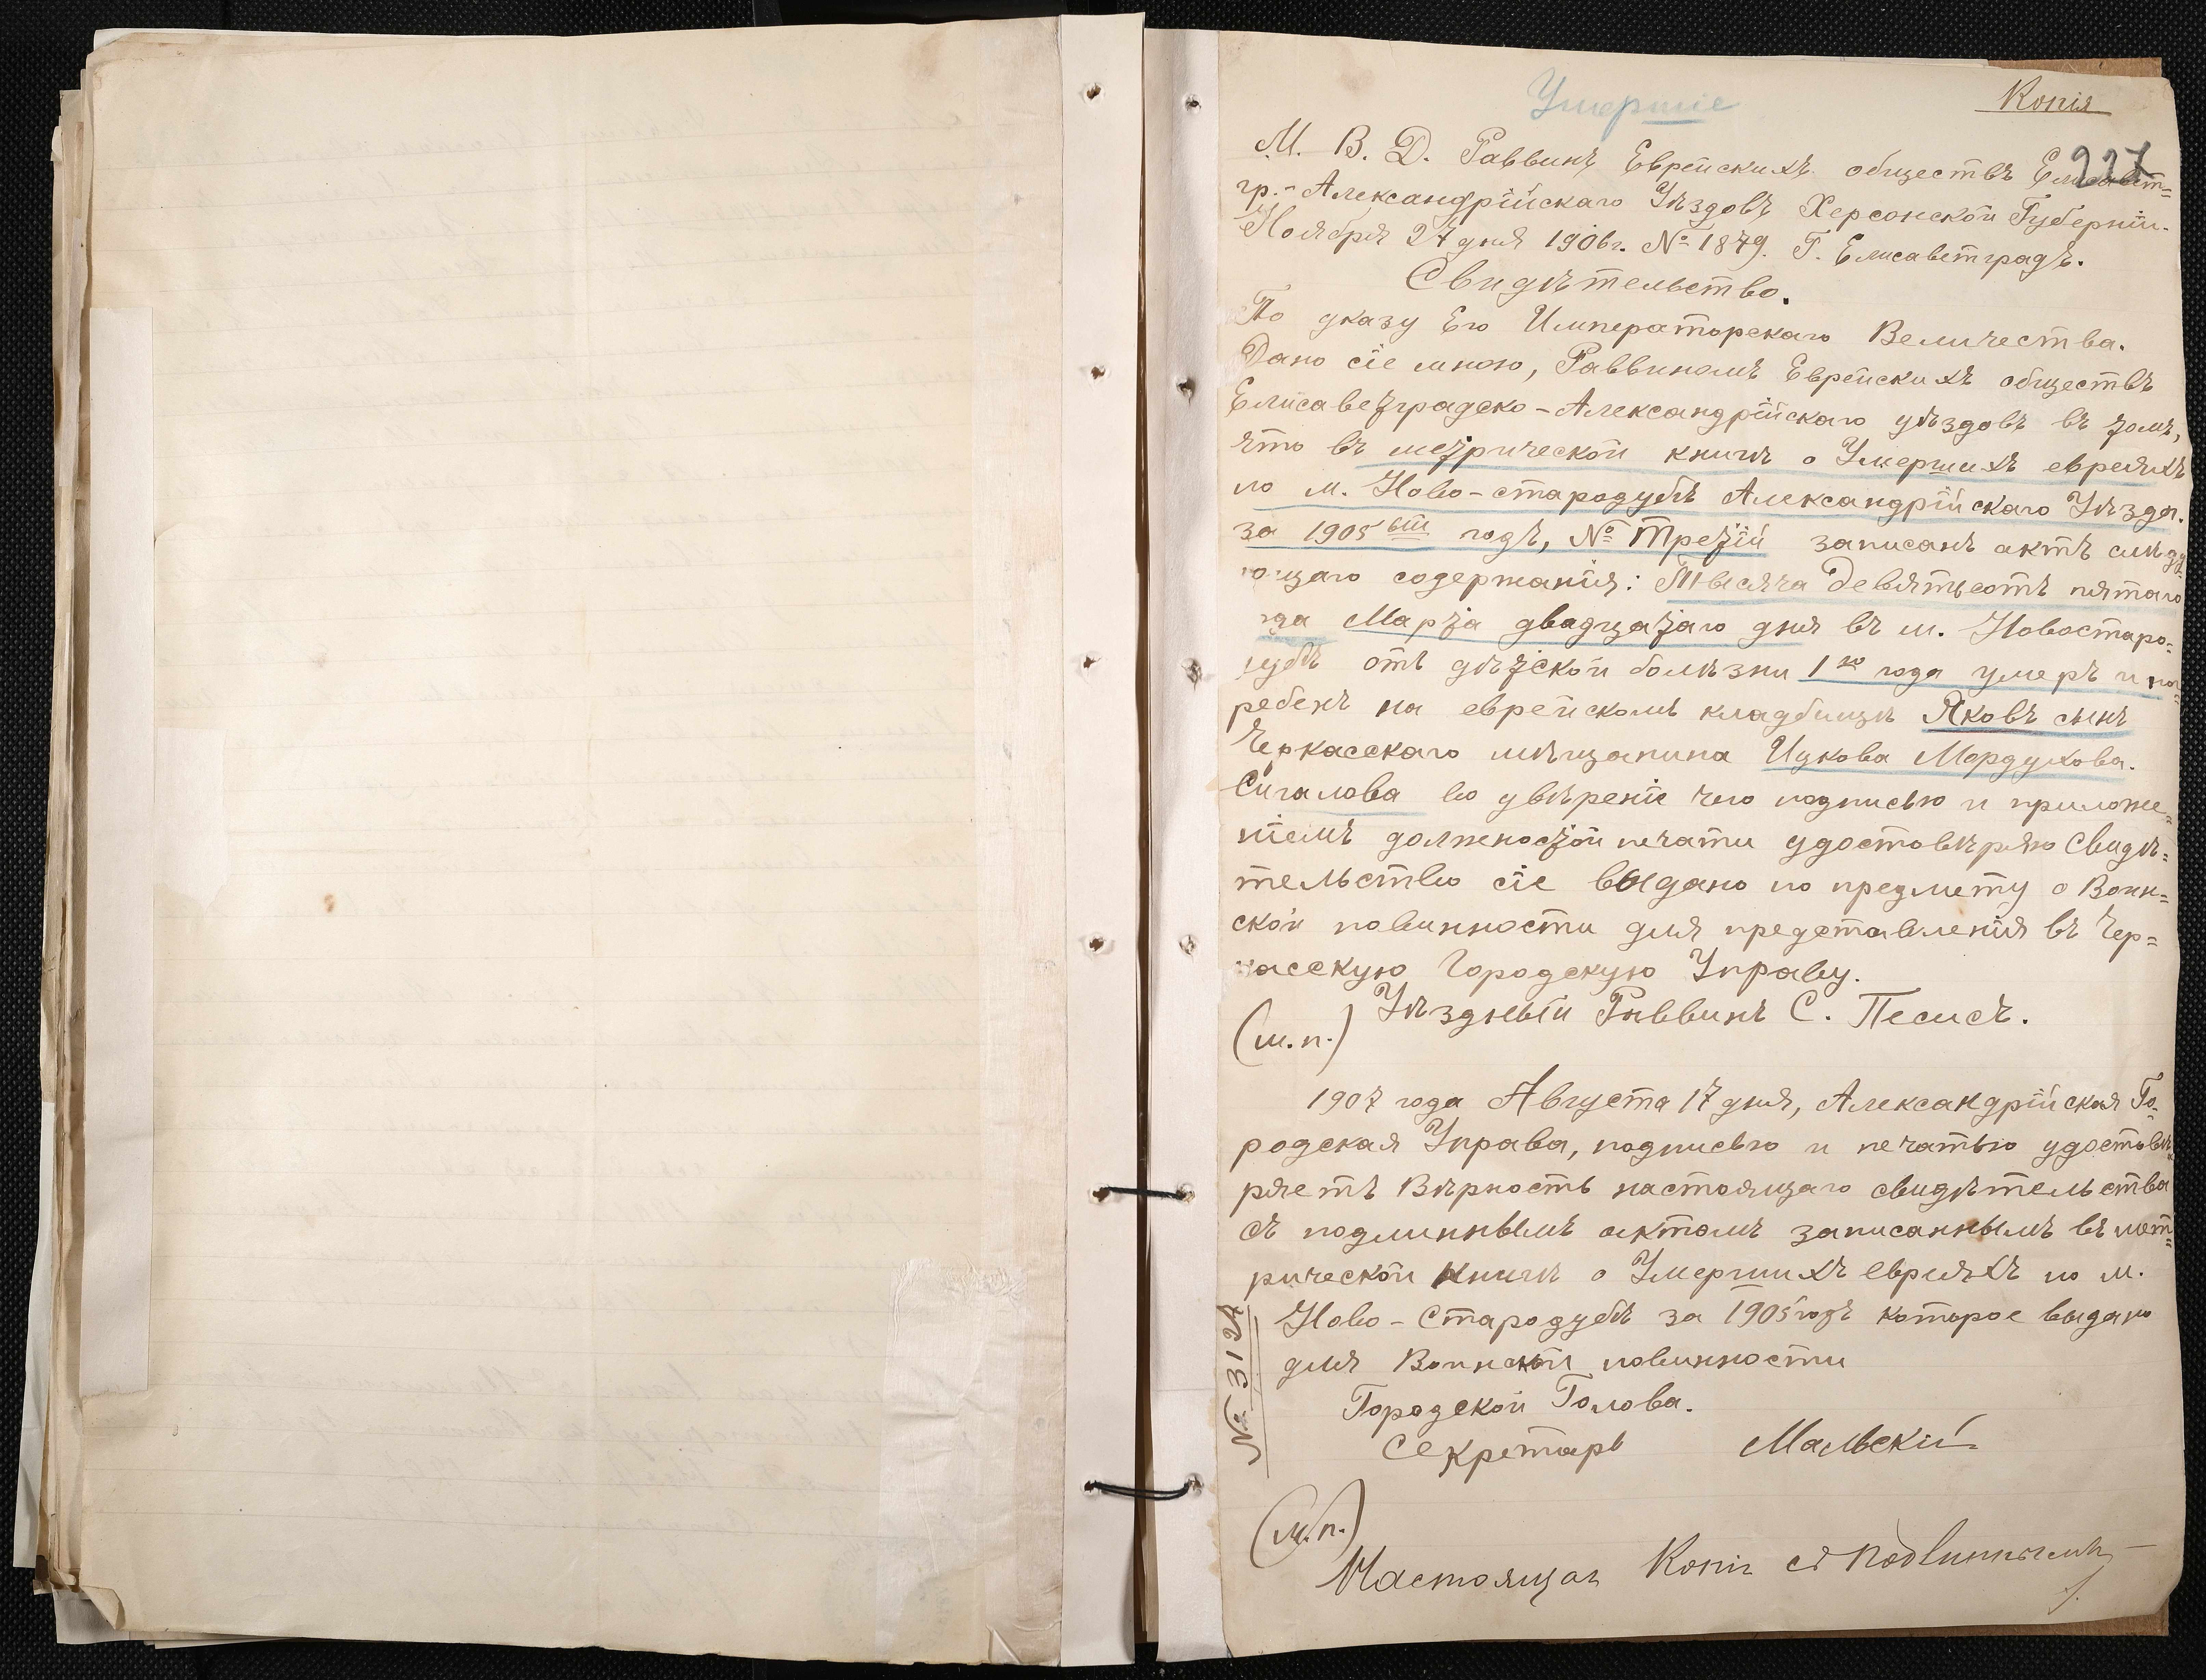 Умершіе
Копія
227
М. В. Д. Раввинъ Еврейскихъ обществъ Елисавет=
гр.-Александрійскаго Уѣздовъ Херсонской Губерніи.
Ноября 27 дня 1906г. № 1879. Г. Елисаветградъ.
Свидѣтельство.
По указу Его Императорскаго Величества.
Дано сіе мною, Раввиномъ Еврейскихъ обществъ
Елисаветградско-Александрійскаго уѣздовъ въ томъ,
что въ метрической книгѣ о Умершихъ евреяхъ
по м. Ново-стародубѣ Александрійскаго Уѣзда.
за 1905 ый годъ, № Третій записанъ актъ слѣду
ющаго содержанія: Тысяча девятьсотъ пятаго
года Марта двадцатаго дня въ м. Новостаро=
дубѣ отъ дѣтской болѣзни 1го года умеръ и пог=
ребенъ на еврейскомъ кладбищѣ Яковъ сынъ
Черкасскаго мѣщанина Ицкова Мордухова.
Сигалова во увѣреніе чего подписью и приложе=
ніемъ должностой печати удостовѣряю Свидѣ=
тельство сіе выдано по предмету о Воин=
ской повинности для представленія въ Чер=
касскую Городскую Управу.
Уѣздный Раввинъ С. Песисъ.
(м.п.)
1907 года Августа 17 дня, Александрійская Го=
родская Управа, подписью и печатью удостовѣ
ряетъ Вѣрность настоящаго свидѣтельства
съ подлиннымъ актомъ записаннымъ въ мет=
рической книгѣ о Умершихъ евреяхъ по м.
Ново-Стародубѣ за 1905 годъ которое выдано
для Воинской повинности
Городской Голова.
Секретарь Мальскій
№ 3124
(м.п.)
Настоящая Копія съ подлиннымъ